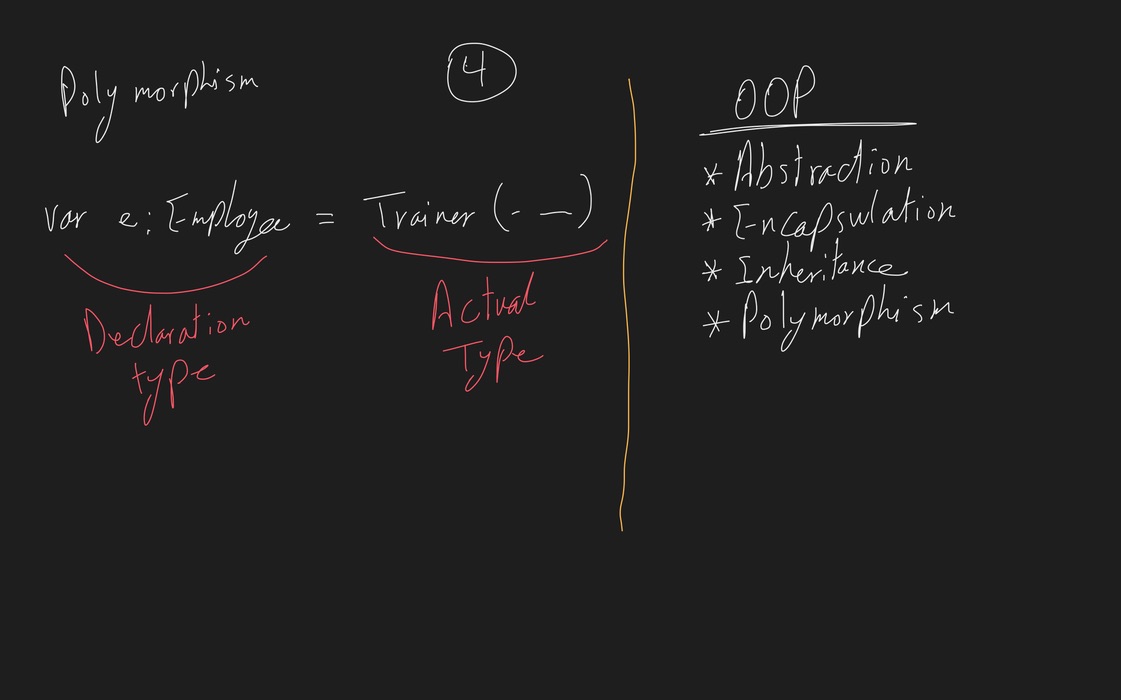 Polymorphism
4
var e: Employee = Trainer (- —)
Declaration
type
Actual
Type
OOP
* Abstraction
* Encapsulation
* Inheritance
* Polymorphism